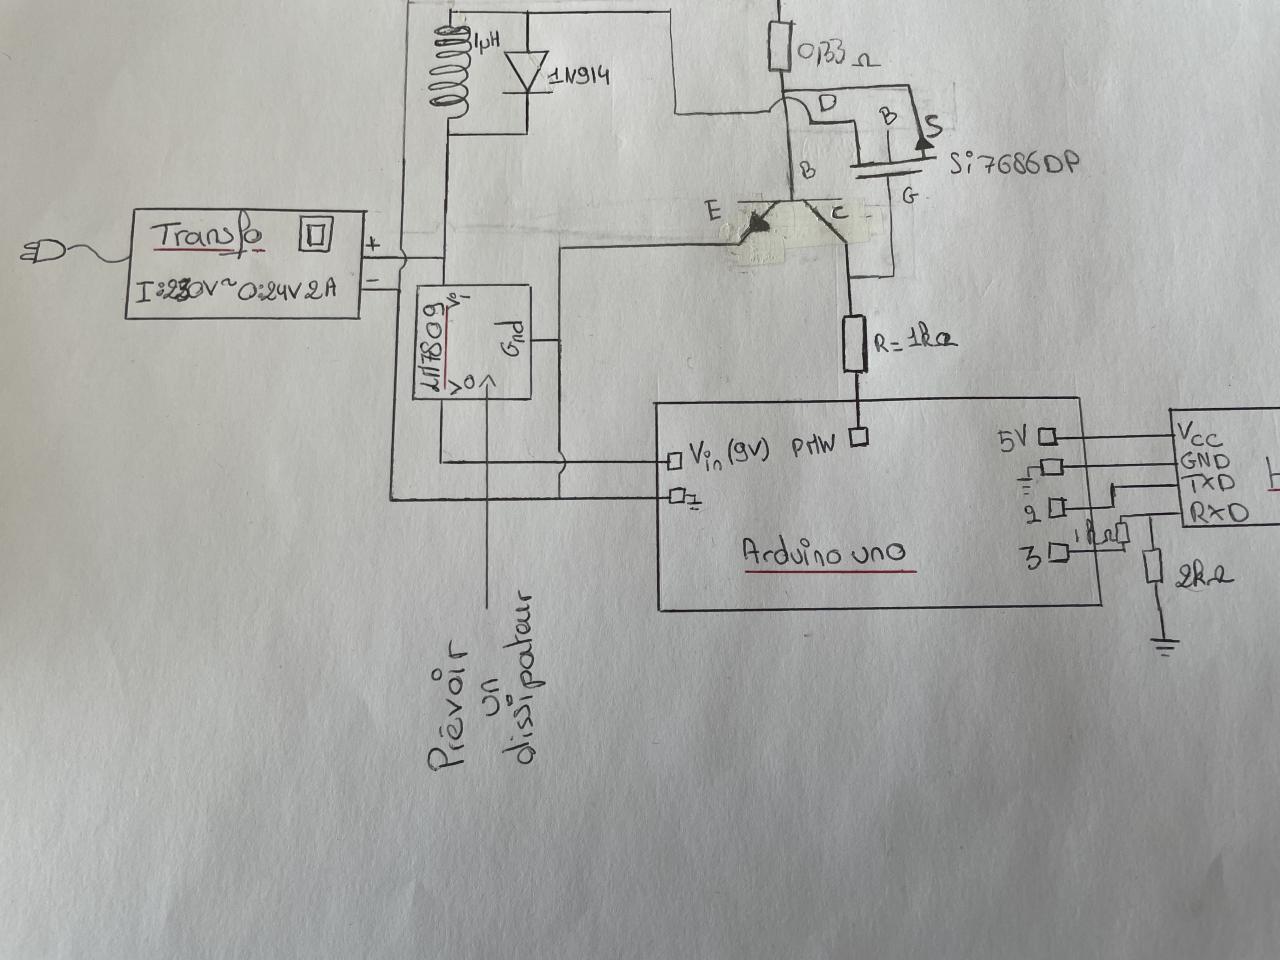 1µH
1N914
0,33 Ω
D
B
S
Si7686DP
B
G
E
C
Transfo
+
-
I:230V~ O:24V 2A
LM7809
Vi
Gnd
Vo
R=1kΩ
Vin (9V)
PMW
5V
2
3
1kΩ
Arduino uno
VCC
GND
TXD
RXD
2kΩ
Prévoir
un
dissipateur